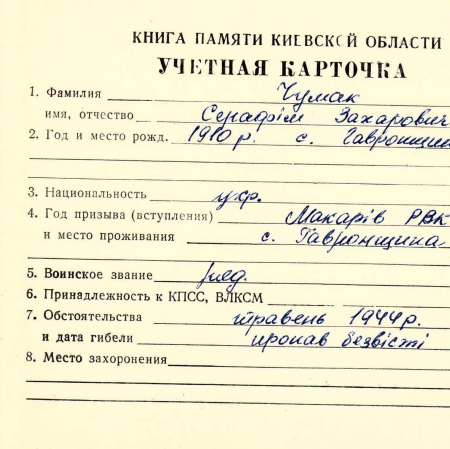 КНИГА ПАМЯТИ КИЕВСКОЙ ОБЛАСТИ
УЧЕТНАЯ КАРТОЧКА
1. Фамилия Чумак
имя, отчество Серафім Захарович
2. Год и место рожд. 1910 р. с. Гавронщин
3. Национальность укр.
4. Год призыва (вступления) Макарів РВК
и место проживания с. Гавронщина
5. Воинское звание ряд.
6. Принадлежность к КПСС, ВЛКСМ
7. Обстоятельства травень 1944 р.
и дата гибели пропав безвісті
8. Место захоронения